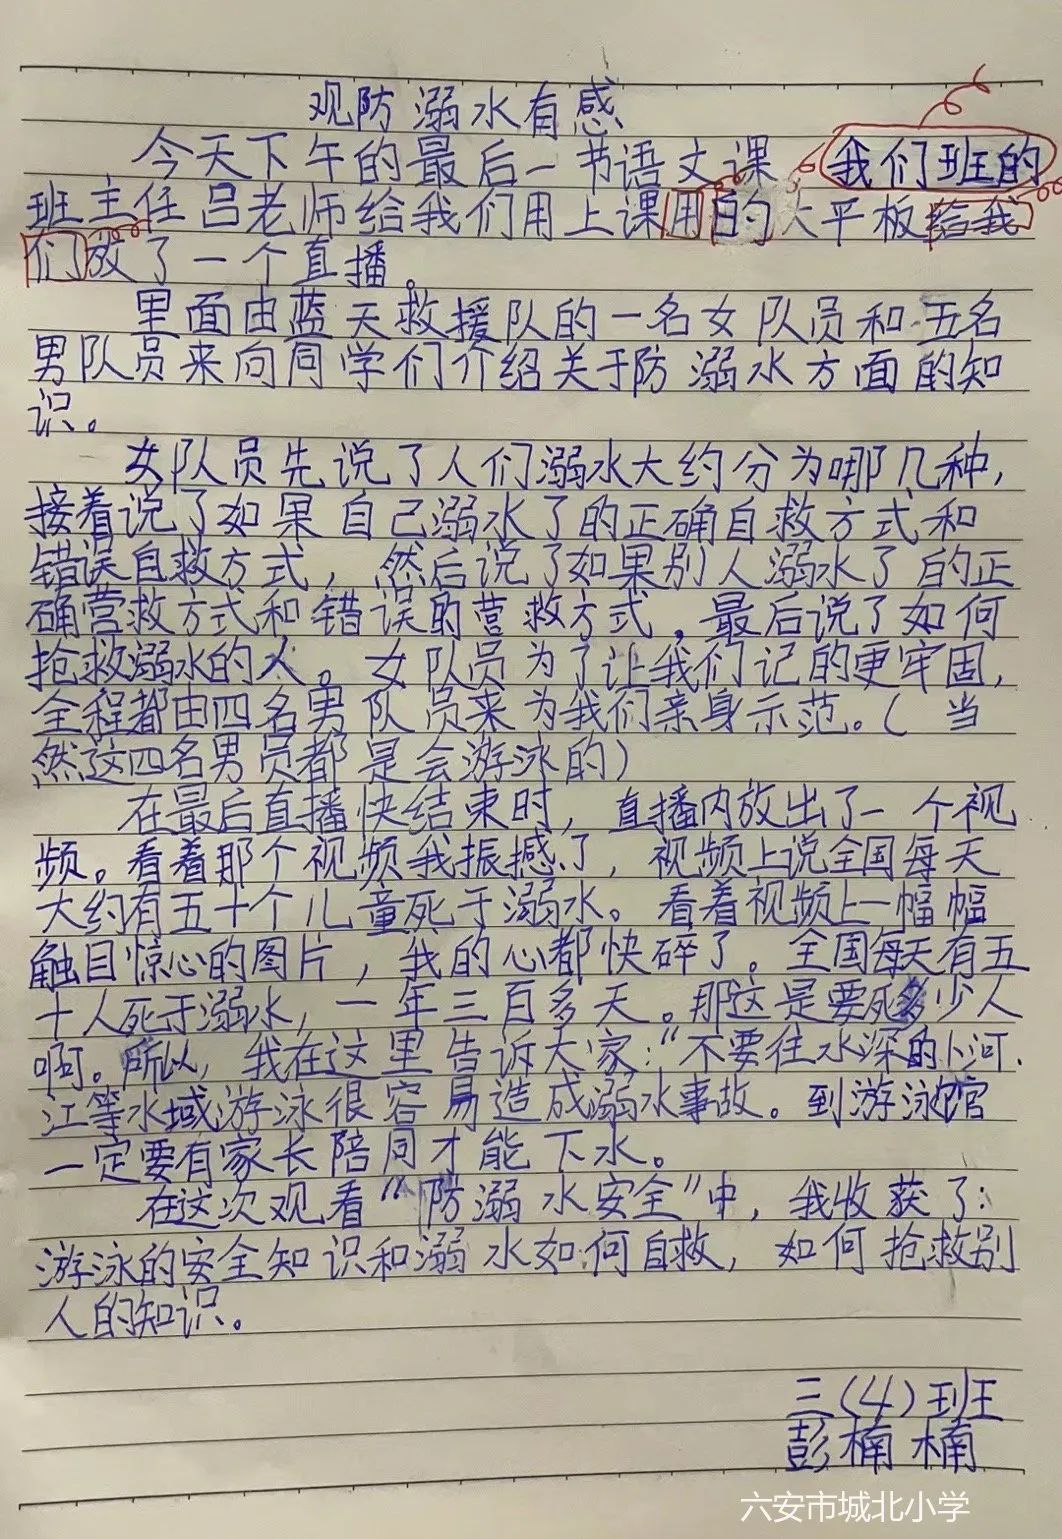 观防溺水有感
今天下午的最后一节语文课 我们班的
班主任吕老师给我们用上课用的大平板给我
们放了一个直播。
里面由蓝天救援队的一名女队员和五名
男队员来向同学们介绍关于防溺水方面的知
识。
女队员先说了人们溺水大约分为哪几种，
接着说了如果自己溺水了的正确自救方式和
错误自救方式，然后说了如果别人溺水了的正
确营救方式和错误的营救方式。最后说了如何
抢救溺水的人。女队员为了让我们记的更牢固，
全程都由四名男队员来为我们亲身示范。（当
然这四名男员都是会游泳的）
在最后直播快结束时，直播内放出了一个视
频。看着那个视频我振撼了，视频上说全国每天
大约有五十个儿童死于溺水。看着视频上一幅幅
触目惊心的图片，我的心都快碎了。全国每天有五
十人死于溺水，一年三百多天。那这是要死多少人
啊。所以，我在这里告诉大家：“不要往水深的小河.
江等水域游泳很容易造成溺水事故。到游泳馆
一定要有家长陪同才能下水。
在这次观看“防溺水安全”中，我收获了：
游泳的安全知识和溺水如何自救，如何抢救别
人的知识。
三（4）班
彭楠楠
六安市城北小学